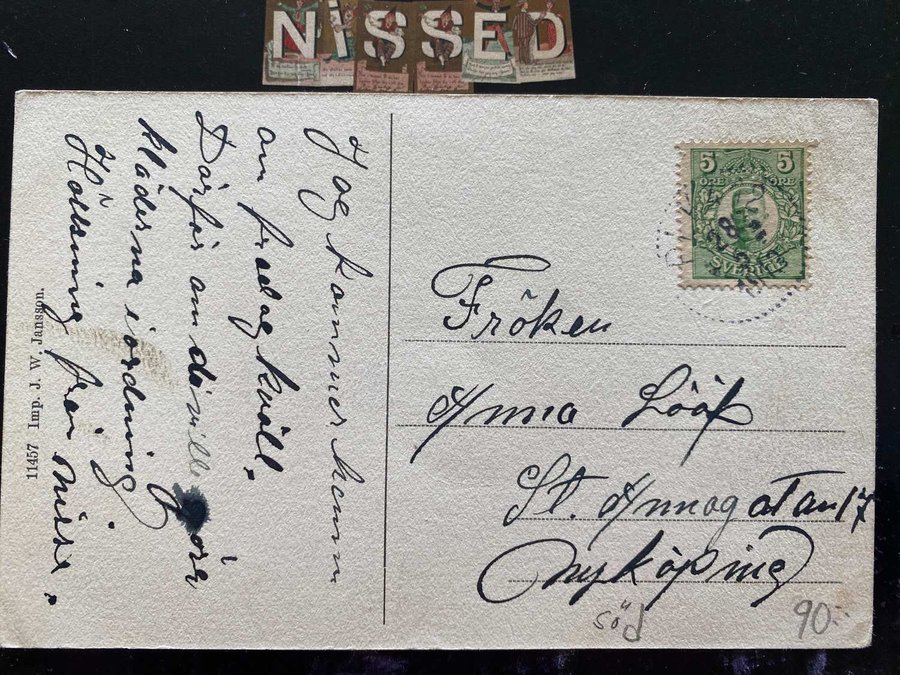 NISSED
Jag kommer hemm
om fredag kväll.
Därför om du ville göra
kläderna i ordning
Hälsning från Nisse.
11457 Imp. J. W. Jansson.
5 5
ÖRE ÖRE
SVERIGE
28
Fröken
Anna Lööf
St. Annogatan 17
Nyköping
90:-